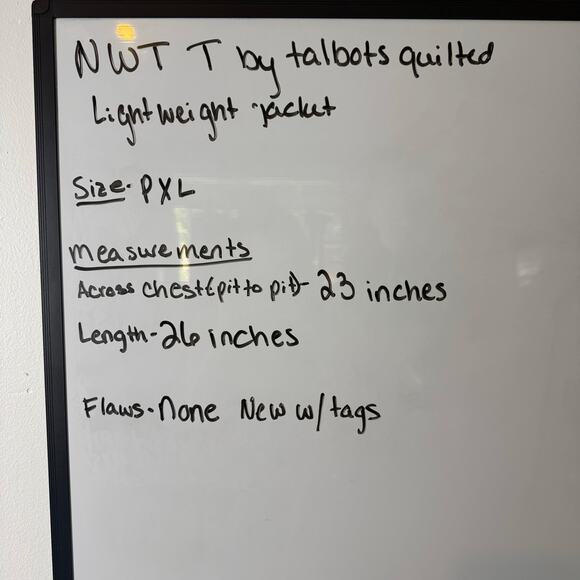 NWT T by talbots quilted
Lightweight jacket
Size- PXL
measurements
Across chest(pit to pit)- 23 inches
Length- 26 inches
Flaws- None New w/tags